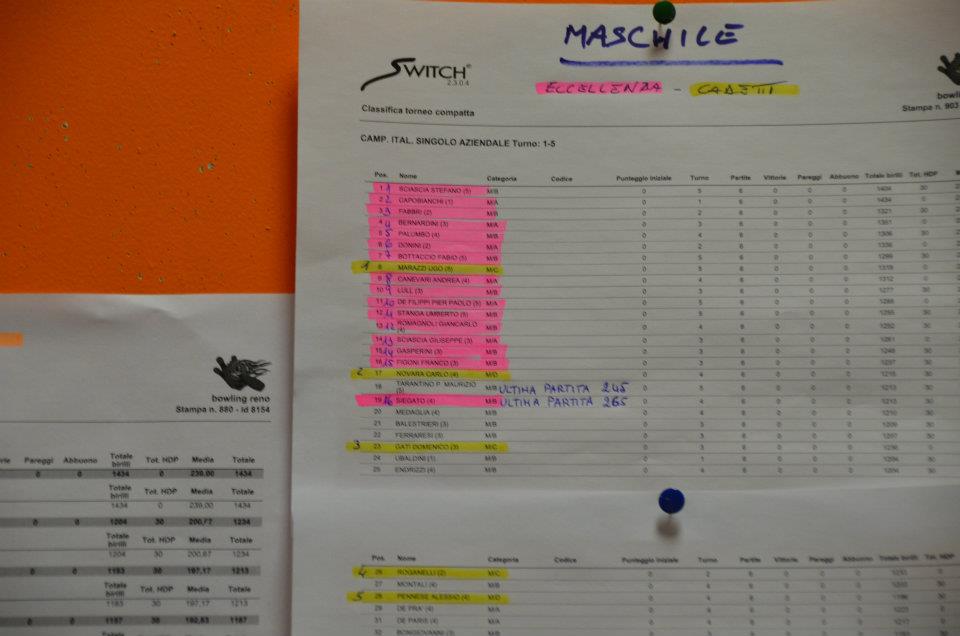 MASCHILE
SWITCH®
2.3.0.4
ECCELLENZA - CADETTI
bowli
Stampa n. 903
Classifica torneo compatta
CAMP. ITAL. SINGOLO AZIENDALE Turno: 1-5
Pos. Nome Categoria Codice Punteggio iniziale Turno Partite Vittorie Pareggi Abbuono Totale birilli Tot. HDP
1 1 SCIASCIA STEFANO (5) M/B 0 5 6 0 0 0 1404 30
2 2 CAPOBIANCHI (1) M/A 0 1 6 0 0 0 1434 0
3 3 FABBRI (2) M/B 0 2 6 0 0 0 1321 30
4 4 BERNARDINI (3) M/A 0 3 6 0 0 0 1351 0
5 5 PALUMBO (4) M/B 0 4 6 0 0 0 1306 30
6 6 DONINI (2) M/A 0 2 6 0 0 0 1336 0
7 7 BOTTACCIO FABIO (5) M/B 0 5 6 0 0 0 1299 30
1 8 MARAZZI UGO (5) M/C 0 5 6 0 0 0 1319 0
9 8 CANEVARI ANDREA (4) M/A 0 4 6 0 0 0 1312 0
10 9 LULL (3) M/B 0 3 6 0 0 0 1277 30
11 10 DE FILIPPI PIER PAOLO (5) M/A 0 5 6 0 0 0 0
12 11 STANGA UMBERTO (5) M/B 0 5 6 0 0 0 1255 30
13 12 ROMAGNOLI GIANCARLO (4) M/B 0 4 6 0 0 0 30
14 13 SCIASCIA GIUSEPPE (3) M/A 0 3 6 0 0 0 1281 0
15 14 GASPERINI (3) M/B 0 3 6 0 0 0 30
16 15 FIGONI FRANCO (3) M/B 0 3 6 0 0 0 30
2 17 NOVARA CARLO (4) M/D 0 4 6 0 0 0 1215 30
18 TARANTINO P. MAURIZIO (5) M/B ULTIMA PARTITA 245 0 5 6 0 0 0 1213 30
19 16 SIEGATO (4) M/B ULTIMA PARTITA 265 0 4 6 0 0 0 30
20 MEDAGLIA (4) M/B 0 4 6 0 0 0 1210 30
21 BALESTRIERI (3) M/B 0 3 6 0 0 0 1209 30
22 FERRARESI (3) M/B 0 3 6 0 0 0 1207 30
3 23 GATI DOMENICO (3) M/C 0 3 6 0 0 0 0
24 UBALDINI (1) M/B 0 6 0 0 0 1204 30
25 ENDRIZZI (4) M/B 0 4 6 0 0 0 1204 30
Pos. Nome Categoria Codice Punteggio iniziale Turno Partite Vittorie Pareggi Abbuono Totale birilli Tot. HDP
4 26 ROGANELLI (2) M/C 0 2 6 0 0 0 0
27 MONTALI (4) M/B 0 4 6 0 0 0 30
5 28 PENNESE ALESSIO (4) M/D 0 4 6 0 0 0 30
29 DE PRA' (4) M/A 0 4 6 0 0 0 0
31 DE PARIS (4) M/A 0 4 6 0 0 0
32 BONGIOVANNI (3) M/B
bowling reno
Stampa n. 880 - id 8154
rie Pareggi Abbuono Totale birilli Tot. HDP Media Totale
0 0 1434 0 239,00 1434
Totale birilli Tot. HDP Media Totale
1434 0 239,00 1434
0 0 1204 30 200,67 1234
Totale birilli Tot. HDP Media Totale
1204 30 200,67 1234
0 0 1183 30 197,17 1213
Totale birilli Tot. HDP Media Totale
1183 30 197,17 1213
0 0 1157 30 192,83 1187
Totale Tot. HDP Media Totale